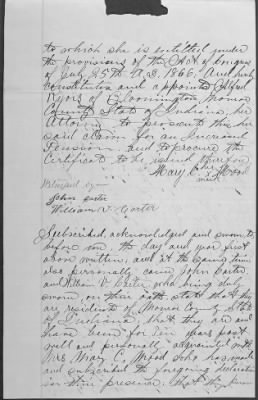 to which she is entitled under
the provisions of the Act of Congress
of July 25th A.D. 1866. And hereby
constitutes and appoints Alfred
Ryors of Bloomington, Monroe
County State of Indiana, her
Attorney to present this her
said claim for an Increased
Pension, and to procure the
Certificate to be issued therefor
Mary C. her x Mood
mark
Witnessed by
John Carter
William V. Carter
Subscribed, acknowledged and sworn to
before me, the day and year first
above written, and at the same time
also personally came John Carter,
and William V. Carter who being duly
sworn, on their oath state that they
are residents of Monroe County State
of Indiana that they are and
have been for ten years past
well and personally acquainted with
Mrs Mary C. Mood who has made
and subscribed the foregoing declaration
in their presence, that they know